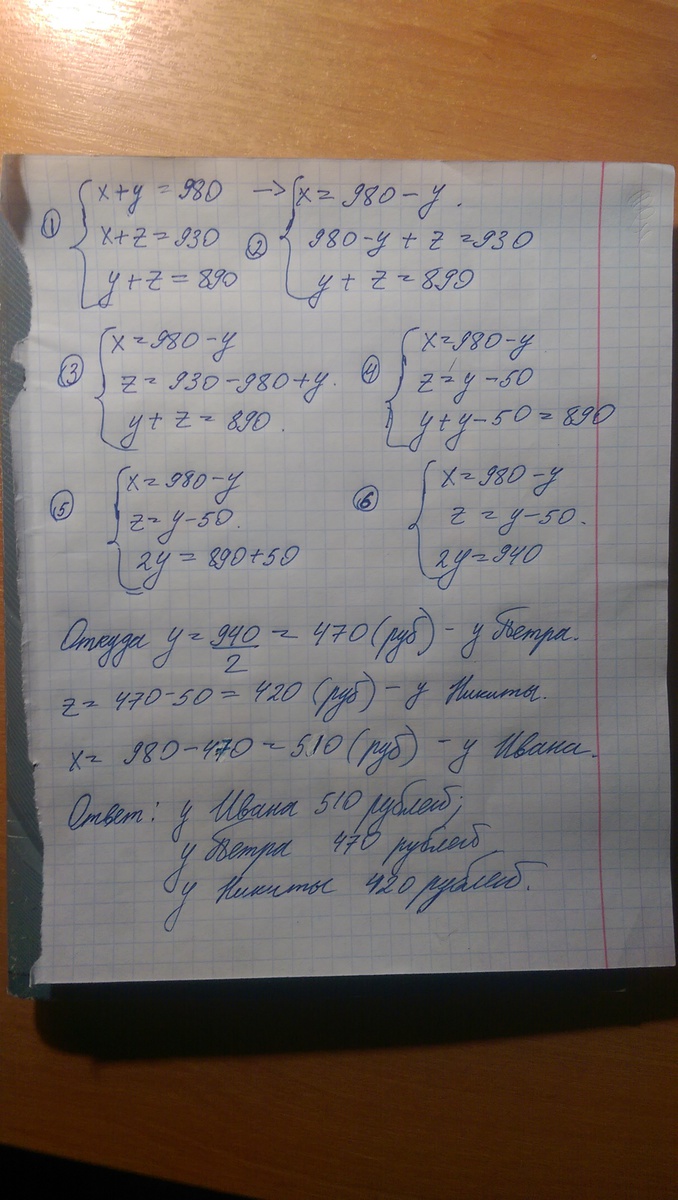 ① { x+y=980 → ② { x=980-y.
x+z=930 980-y+z=930
y+z=890 y+z=890
③ { x=980-y ④ { x=980-y
z=930-980+y. z=y-50
y+z=890. y+y-50=890
⑤ { x=980-y ⑥ { x=980-y
z=y-50. z=y-50.
2y=890+50 2y=940
Откуда y=940/2=470 (руб) - у Петра.
z=470-50=420 (руб) - у Никиты.
x=980-470=510 (руб) - у Ивана.
Ответ: у Ивана 510 рублей;
у Петра 470 рублей
у Никиты 420 рублей.